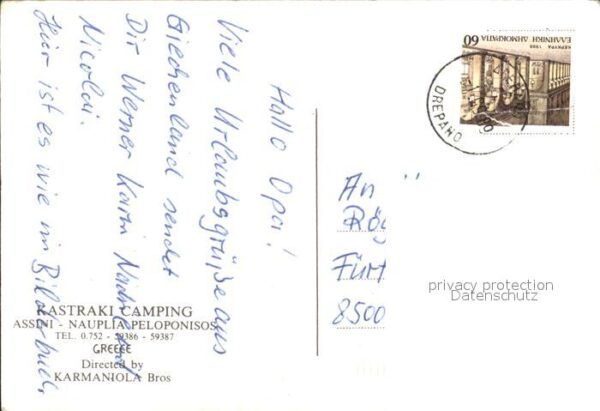 Hallo Opa!
Viele Urlaubsgrüße aus
Griechenland sendet
Dir Werner Karin
Nicolai.
Hier ist es wie im Bilderbuch.
KASTRAKI CAMPING
ASSINI - NAUPLIA PELOPONISOS
TEL. 0.752 - 59386 - 59387
GREECE
Directed by
KARMANIOLA Bros
60
ΕΛΛΗΝΙΚΗ ΔΗΜΟΚΡΑΤΙΑ
ΚΕΡΚΥΡΑ 1988
DREPANO
An
Rög
Fürt
8500
privacy protection
Datenschutz